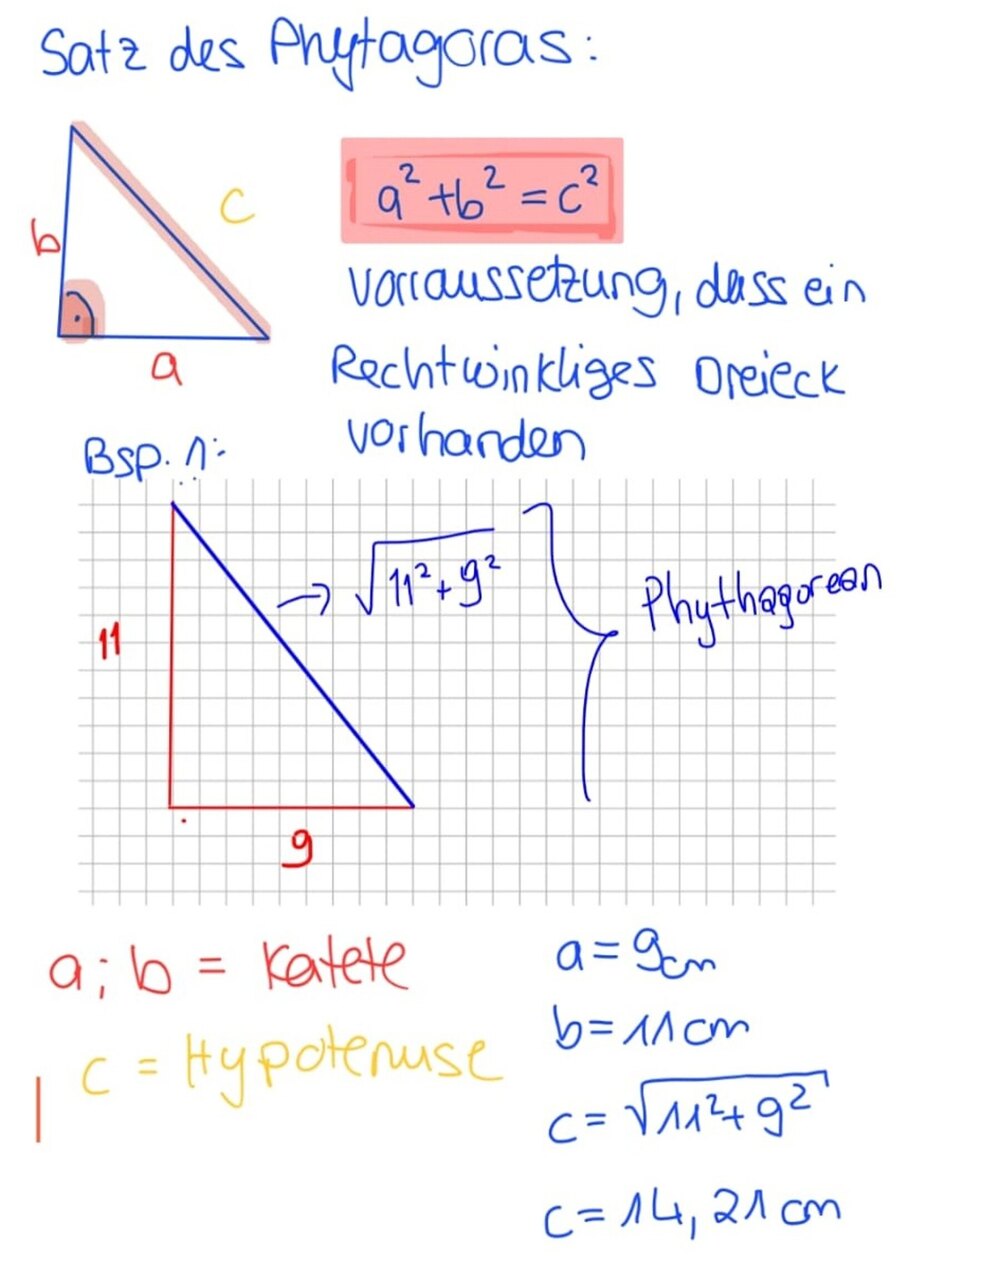 Satz des Phytagoras:
b
c
a
a²+b²=c²
vorraussetzung, dass ein
Rechtwinkliges Dreieck
vorhanden
Bsp. 1:
11
→ √11²+9²
Phythagorean
9
a; b = Katete
c = Hypotenuse
a=9cm
b=11cm
c=√11²+9²
c=14,21cm